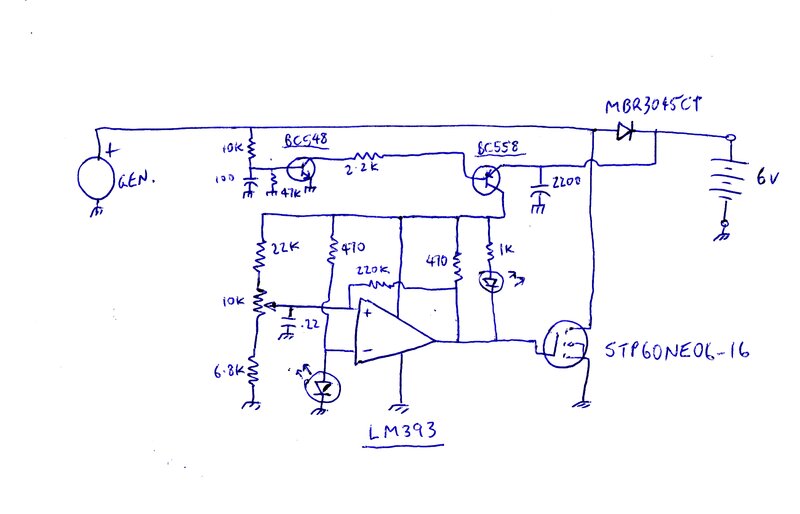 MBR3045CT
BC548
BC558
10K
+
GEN.
100
47K
2.2K
2200
6V
22K
470
220K
470
1K
10K
+
.22
−
6.8K
STP60NE06-16
LM393